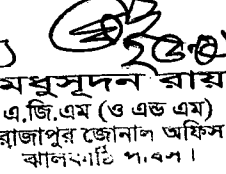 মধুসূদন রায়
এ.জি.এম (ও এন্ড এম)
রাজাপুর জোনাল অফিস
ঝালকাঠি পবিস।